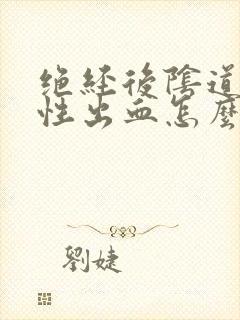 绝经後陰道
性出血怎麼
劉婕